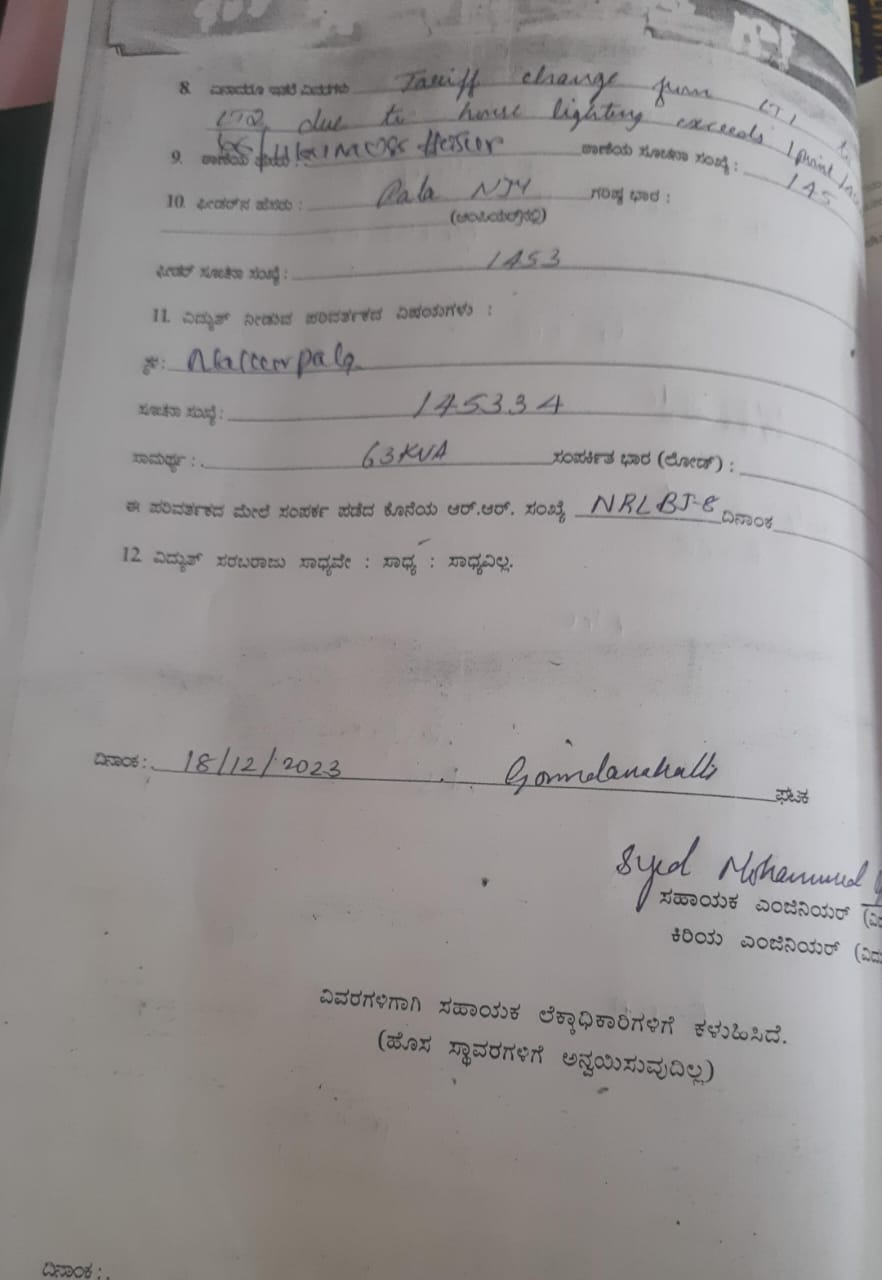 8. ಇತರೆ Tariff change from LT1 to
LT2 due to house lighting exceeds 1 point
9. ಠಾಣೆಯ ಠಾಣೆಯ ಸೂಚನಾ ಸಂಖ್ಯೆ : 145
10. ಫೀಡರ್‌ನ ಹೆಸರು : Pala NJY ಗರಿಷ್ಠ ಭಾರ :
(ಆಂಪಿಯರ್‌ಗಳಲ್ಲಿ)
ಫೀಡರ್ ಸೂಚನಾ ಸಂಖ್ಯೆ : 1453
11. ವಿದ್ಯುತ್ ನೀಡುವ ಪರಿವರ್ತಕದ ವಿಷಯಗಳು :
ಸ್ಥಳ :
ಸೂಚನಾ ಸಂಖ್ಯೆ : 145334
ಸಾಮರ್ಥ್ಯ : 63 KVA ಸಂಪರ್ಕಿತ ಭಾರ (ಲೋಡ್) :
ಈ ಪರಿವರ್ತಕದ ಮೇಲೆ ಸಂಪರ್ಕ ಪಡೆದ ಕೊನೆಯ ಆರ್.ಆರ್. ಸಂಖ್ಯೆ NRLBJ-8 ದಿನಾಂಕ
12. ವಿದ್ಯುತ್ ಸರಬರಾಜು ಸಾಧ್ಯವೇ : ಸಾಧ್ಯ : ಸಾಧ್ಯವಿಲ್ಲ.
ದಿನಾಂಕ : 18/12/2023 Govindanahalli ಘಟಕ
Syed Mohammed
ಸಹಾಯಕ ಎಂಜಿನಿಯರ್ (ವಿ
ಕಿರಿಯ ಎಂಜಿನಿಯರ್ (ವಿದ್ಯು
ವಿವರಗಳಿಗಾಗಿ ಸಹಾಯಕ ಲೆಕ್ಕಾಧಿಕಾರಿಗಳಿಗೆ ಕಳುಹಿಸಿದೆ.
(ಹೊಸ ಸ್ಥಾವರಗಳಿಗೆ ಅನ್ವಯಿಸುವುದಿಲ್ಲ)
ದಿನಾಂಕ :